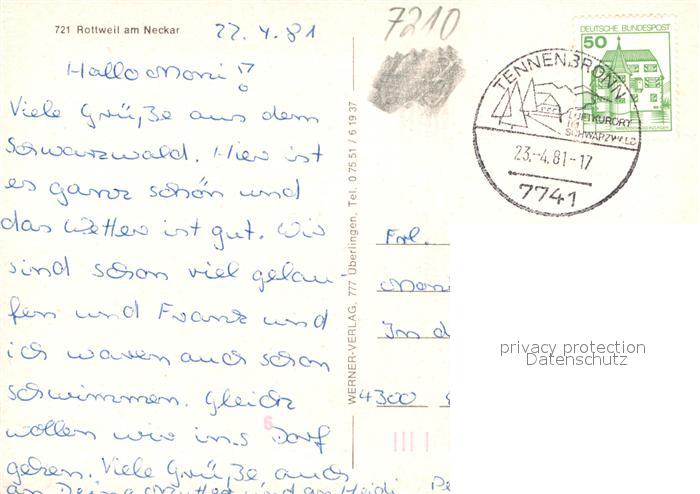 721 Rottweil am Neckar
22.4.81
Hallo Moni!
Viele Grüße aus dem
Schwarzwald. Hier ist
es ganz schön und
das Wetter ist gut. Wir
sind schon viel gelau-
fen und Franz und
ich waren auch schon
schwimmen. Gleich
wollen wir ins Dorf
gehen. Viele Grüße auch
an Deine Mutter und an Heidi
WERNER-VERLAG, 777 Überlingen, Tel. 07551/61937
7210
DEUTSCHE BUNDESPOST
50
TENNENBRONN
LUFTKURORT
IM
SCHWARZWALD
23.-4.81-17
7741
Frl.
Moni
In d
4300
6
privacy protection
Datenschutz